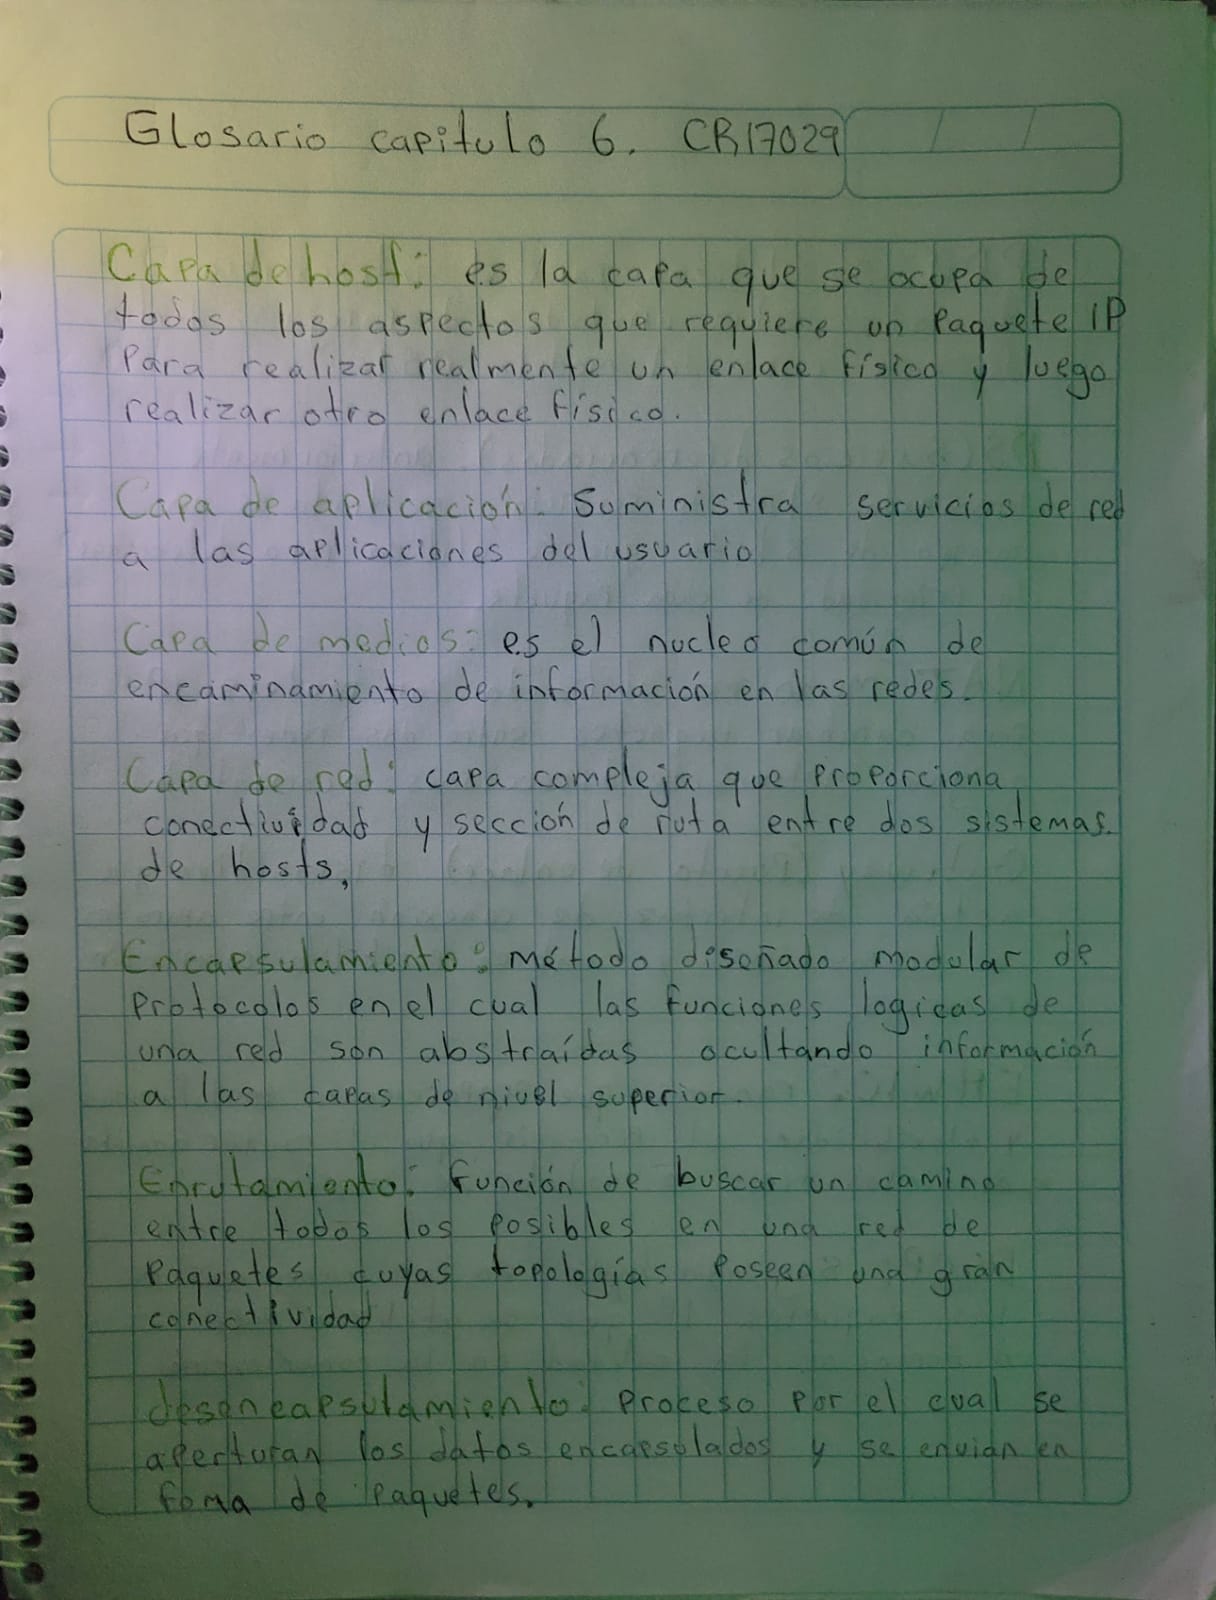 Glosario capitulo 6. CR17029
Capa de host: es la capa que se ocupa de
todos los aspectos que requiere un Paquete IP
Para realizar realmente un enlace físico y luego
realizar otro enlace físico.
Capa de aplicación: Suministra servicios de red
a las aplicaciones del usuario
Capa de medios: es el nucleo común de
encaminamiento de información en las redes.
Capa de red: capa compleja que Proporciona
conectividad y sección de ruta entre dos sistemas.
de hosts,
Encapsulamiento: método diseñado modular de
Protocolos en el cual las funciones logicas de
una red son abstraídas ocultando información
a las capas de nivel superior.
Enrutamiento: Función de buscar un camino
entre todos los Posibles en una red de
Paquetes cuyas topologías Poseen una gran
conectividad
desencapsulamiento: Proceso Por el cual se
aperturan los datos encapsulados y se envian en
foma de Paquetes.